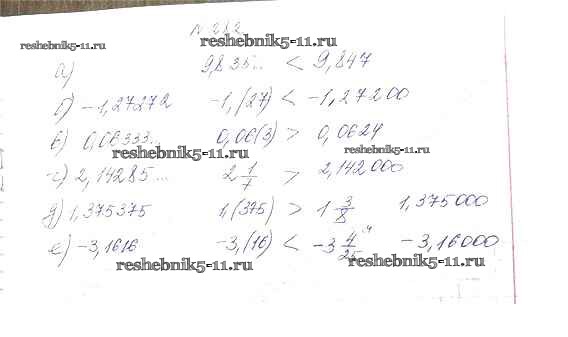 № 282
reshebnik5-11.ru reshebnik5-11.ru
а) 9,835... < 9,847
б) -1,27272 -1,(27) < -1,27200
в) 0,06333... 0,06(3) > 0,0624
reshebnik5-11.ru reshebnik5-11.ru
г) 2,14285... 2 1/7 > 2,142000
д) 1,375375 1,(375) > 1 3/8 1,375000
е) -3,1616 -3,(16) < -3 4/25 -3,16000
reshebnik5-11.ru reshebnik5-11.ru